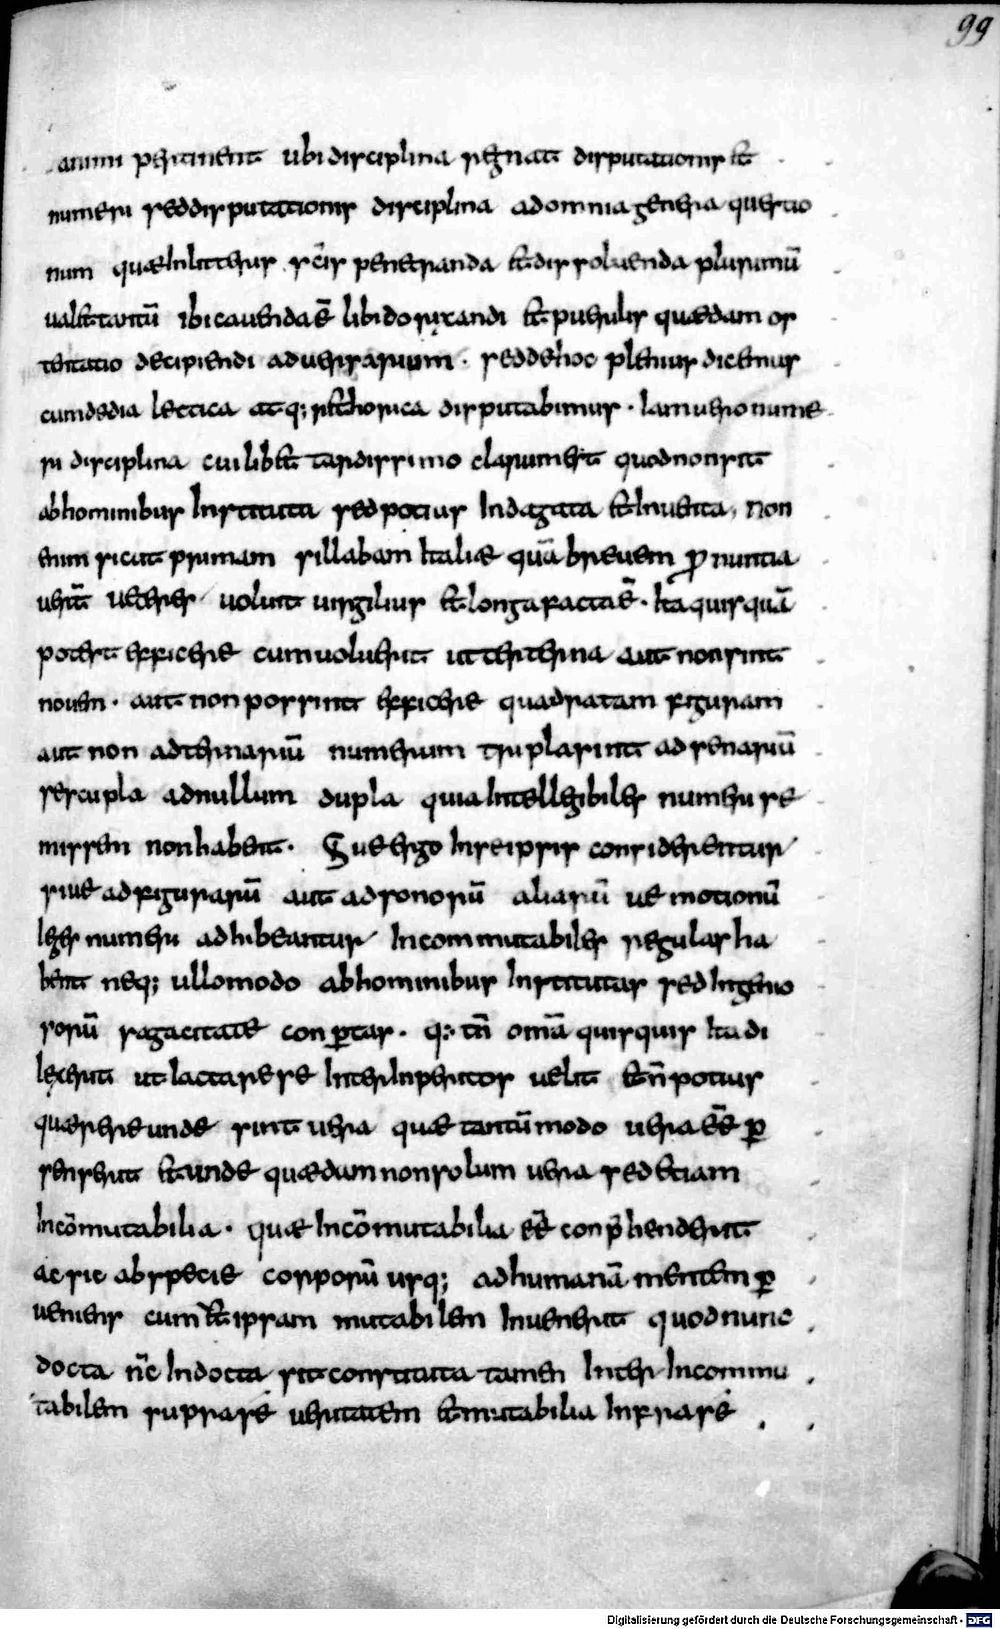 99
animi pertinent ubi disciplina regnat disputationis et
numeri sed disputationis disciplina ad omnia genera questio
num quae in litteris scis penetranda et dissoluenda plurimū
ualet tantū ibi cauenda ē libido rixandi et puerilis quaedam os
tentatio decipiendi aduersarium · sed de hoc plenius dicemus
cum de dialectica atq; rethorica disputabimus · Iam uero nume
ri disciplina cuilibet tardissimo clarum est quod non sit
ab hominibus Instituta sed potius Indagata et Inuenta, non
enim sicut primam sillabam Italiae quā breuem pronuntia
uerūt ueteres uoluit uirgilius et longa facta ē · Ita quisquā
potest efficere cum uoluerit ut ter terna aut non sint
nouem · aut non possint efficere quadratam figuram
aut non ad ternariū numerum tripla sint ad senariū
sescupla ad nullum dupla quia Intellegibiles numeri se
missem non habent · Siue ergo In se ipsis considerentur
siue ad figurarū aut ad sonorū aliarū ue motionū
leges numeri adhibeantur Incommutabiles regulas ha
bent neq; ullo modo ab hominibus Institutas sed Ingenio
sorū sagacitate conptas · q: tn̄ omā quisquis Ita di
lexerit ut iactare se Inter Inperitos uelit et n̄ potius
quaerere unde sint uera quae tantūmodo uera eē p
senserit et unde quaedam non solum uera sed etiam
Incōmutabilia · quae Incōmutabilia eē conprehenderit
ac sic ab specie corporū usq; ad humanā mentem p
ueniens cum et ipsam mutabilem Inuenerit quod nunc
docta nc̄ Indocta sit constituta tamen Inter Incommu
tabilem supra se ueritatem et mutabilia Infra se
Digitalisierung gefördert durch die Deutsche Forschungsgemeinschaft - DFG